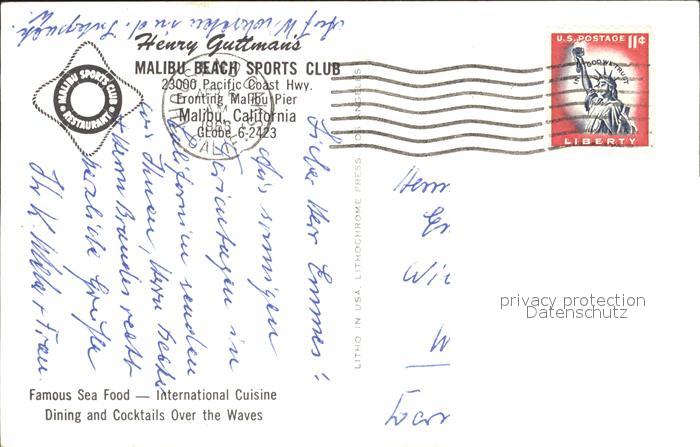 Henry Guttman's
MALIBU BEACH SPORTS CLUB
23000 Pacific Coast Hwy.
Fronting Malibu Pier
Malibu, California
Globe 6-2423
MALIBU SPORTS CLUB
RESTAURANT
U.S. POSTAGE 11¢
IN GOD WE TRUST
LIBERTY
LOS ANGELES
CALIF
Lieber Herr Emmes!
Aus sonnigen
in
Californien senden
wir Ihnen, Herrn
Herrn Brandes
herzliche Grüße
Ihr K. Weber + Frau.
LITHO IN USA, LITHOCHROME PRESS, LOS ANGELES
Herrn
privacy protection
Datenschutz
Famous Sea Food — International Cuisine
Dining and Cocktails Over the Waves